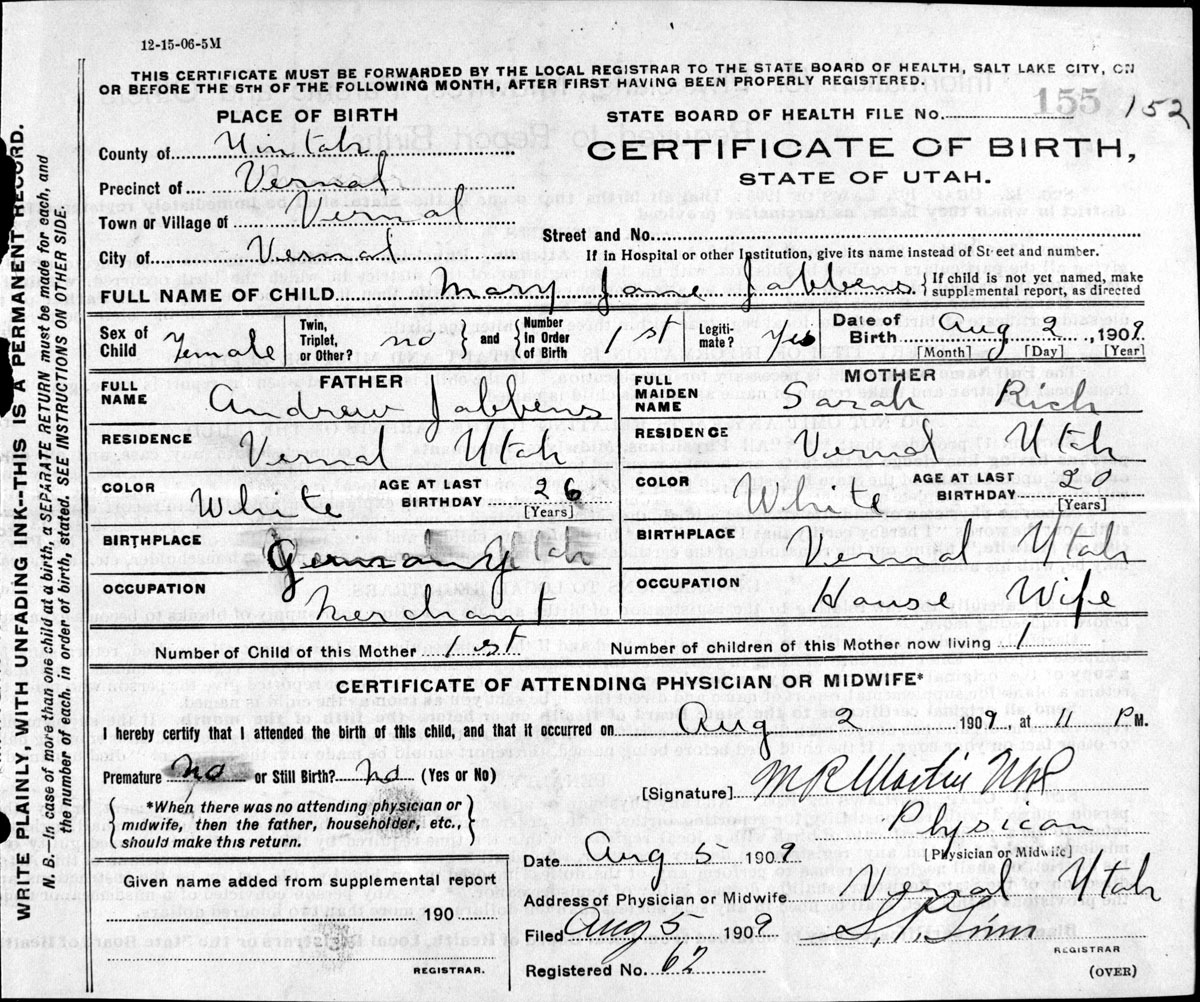 12-15-06-5M
THIS CERTIFICATE MUST BE FORWARDED BY THE LOCAL REGISTRAR TO THE STATE BOARD OF HEALTH, SALT LAKE CITY, ON
OR BEFORE THE 5TH OF THE FOLLOWING MONTH, AFTER FIRST HAVING BEEN PROPERLY REGISTERED.
WRITE PLAINLY, WITH UNFADING INK--THIS IS A PERMANENT RECORD.
N. B.--In case of more than one child at a birth, a SEPARATE RETURN must be made for each, and
the number of each, in order of birth, stated. SEE INSTRUCTIONS ON OTHER SIDE.
PLACE OF BIRTH
County of Uintah
Precinct of Vernal
Town or Village of Vernal
City of Vernal
STATE BOARD OF HEALTH FILE No. 155 152
CERTIFICATE OF BIRTH,
STATE OF UTAH.
Street and No.
If in Hospital or other Institution, give its name instead of Street and number.
FULL NAME OF CHILD Mary Jane Jabbens {If child is not yet named, make
supplemental report, as directed
Sex of Child Female Twin, Triplet, or Other? no } and { Number In Order of Birth 1st Legiti-mate? yes Date of Birth Aug 2, 1909
[Month] [Day] [Year]
FATHER
FULL NAME Andrew Jabbens
RESIDENCE Vernal Utah
COLOR White AGE AT LAST BIRTHDAY 26
[Years]
BIRTHPLACE Germany
OCCUPATION Merchant
MOTHER
FULL MAIDEN NAME Sarah Rich
RESIDENCE Vernal Utah
COLOR White AGE AT LAST BIRTHDAY 20
[Years]
BIRTHPLACE Vernal Utah
OCCUPATION House Wife
Number of Child of this Mother 1st Number of children of this Mother now living 1
CERTIFICATE OF ATTENDING PHYSICIAN OR MIDWIFE*
I hereby certify that I attended the birth of this child, and that it occurred on Aug 2 1909, at 11 P M.
Premature no or Still Birth? no (Yes or No)
*When there was no attending physician or
midwife, then the father, householder, etc.,
should make this return.
Given name added from supplemental report
190
REGISTRAR.
[Signature] Martin
Physican
[Physician or Midwife]
Date Aug 5 1909
Address of Physician or Midwife Vernal Utah
Filed Aug 5 1909
REGISTRAR
Registered No. 62
(OVER)